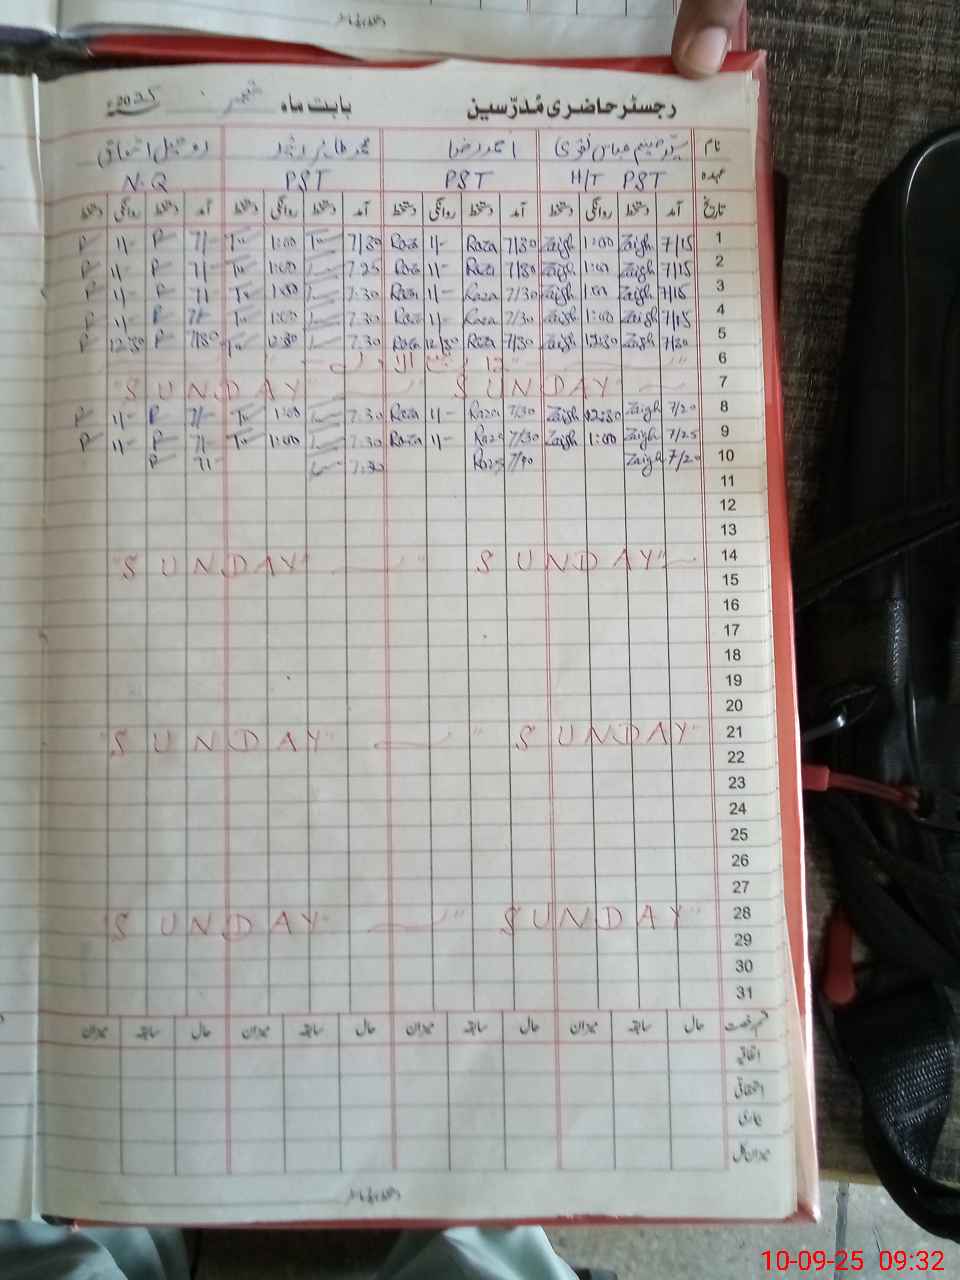 رجسٹر حاضری مُدرّسین بابت ماہ ستمبر 2025ء
نام سید میثم عباس نقوی احمد رضا محمد طاہر رشید روحیل اسحاق
عہدہ H/T PST PST PST N.Q
تاریخ آمد دستخط روانگی دستخط آمد دستخط روانگی دستخط آمد دستخط روانگی دستخط آمد دستخط روانگی دستخط
1 7/15 Zaigh 1:00 Zaigh 7/30 Raza 1/- Raza 7/30 1:00 7/- P 1/- P
2 7/15 Zaigh 1:00 Zaigh 7/30 Raza 1/- Raza 7.25 1:00 7/- P 1/- P
3 7/15 Zaigh 1:00 Zaigh 7/30 Raza 1/- Raza 7:30 1:00 7/ P 1/- P
4 7/15 Zaigh 1:00 Zaigh 7/30 Raza 1/- Raza 7.30 1:00 7/- P 1/- P
5 7/30 Zaigh 12:30 Zaigh 7/30 Raza 12/30 Raza 7.30 12:30 7/30 P 12:30 P
6 "12 ربیع الاول"
7 "SUNDAY" "SUNDAY"
8 7/20 Zaigh 12:30 Zaigh 7/30 Raza 1/- Raza 7.30 1:00 7/- P 1/- P
9 7/25 Zaigh 1:00 Zaigh 7/30 Raza 1/- Raza 7.30 1:00 7/- P 1/- P
10 7/20 Zaigh 7/40 Raza 7:30 7/- P
11
12
13
14 "SUNDAY" "SUNDAY"
15
16
17
18
19
20
21 "SUNDAY" "SUNDAY"
22
23
24
25
26
27
28 "SUNDAY" "SUNDAY"
29
30
31
قسم رخصت حال سابقہ میزان حال سابقہ میزان حال سابقہ میزان حال سابقہ میزان
اتفاقیہ
استحقاقی
بیماری
میزان کل
دستخط ہیڈ ماسٹر
10-09-25 09:32